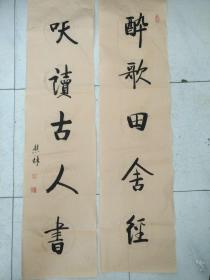 醉歌田舍經
吠讀古人書